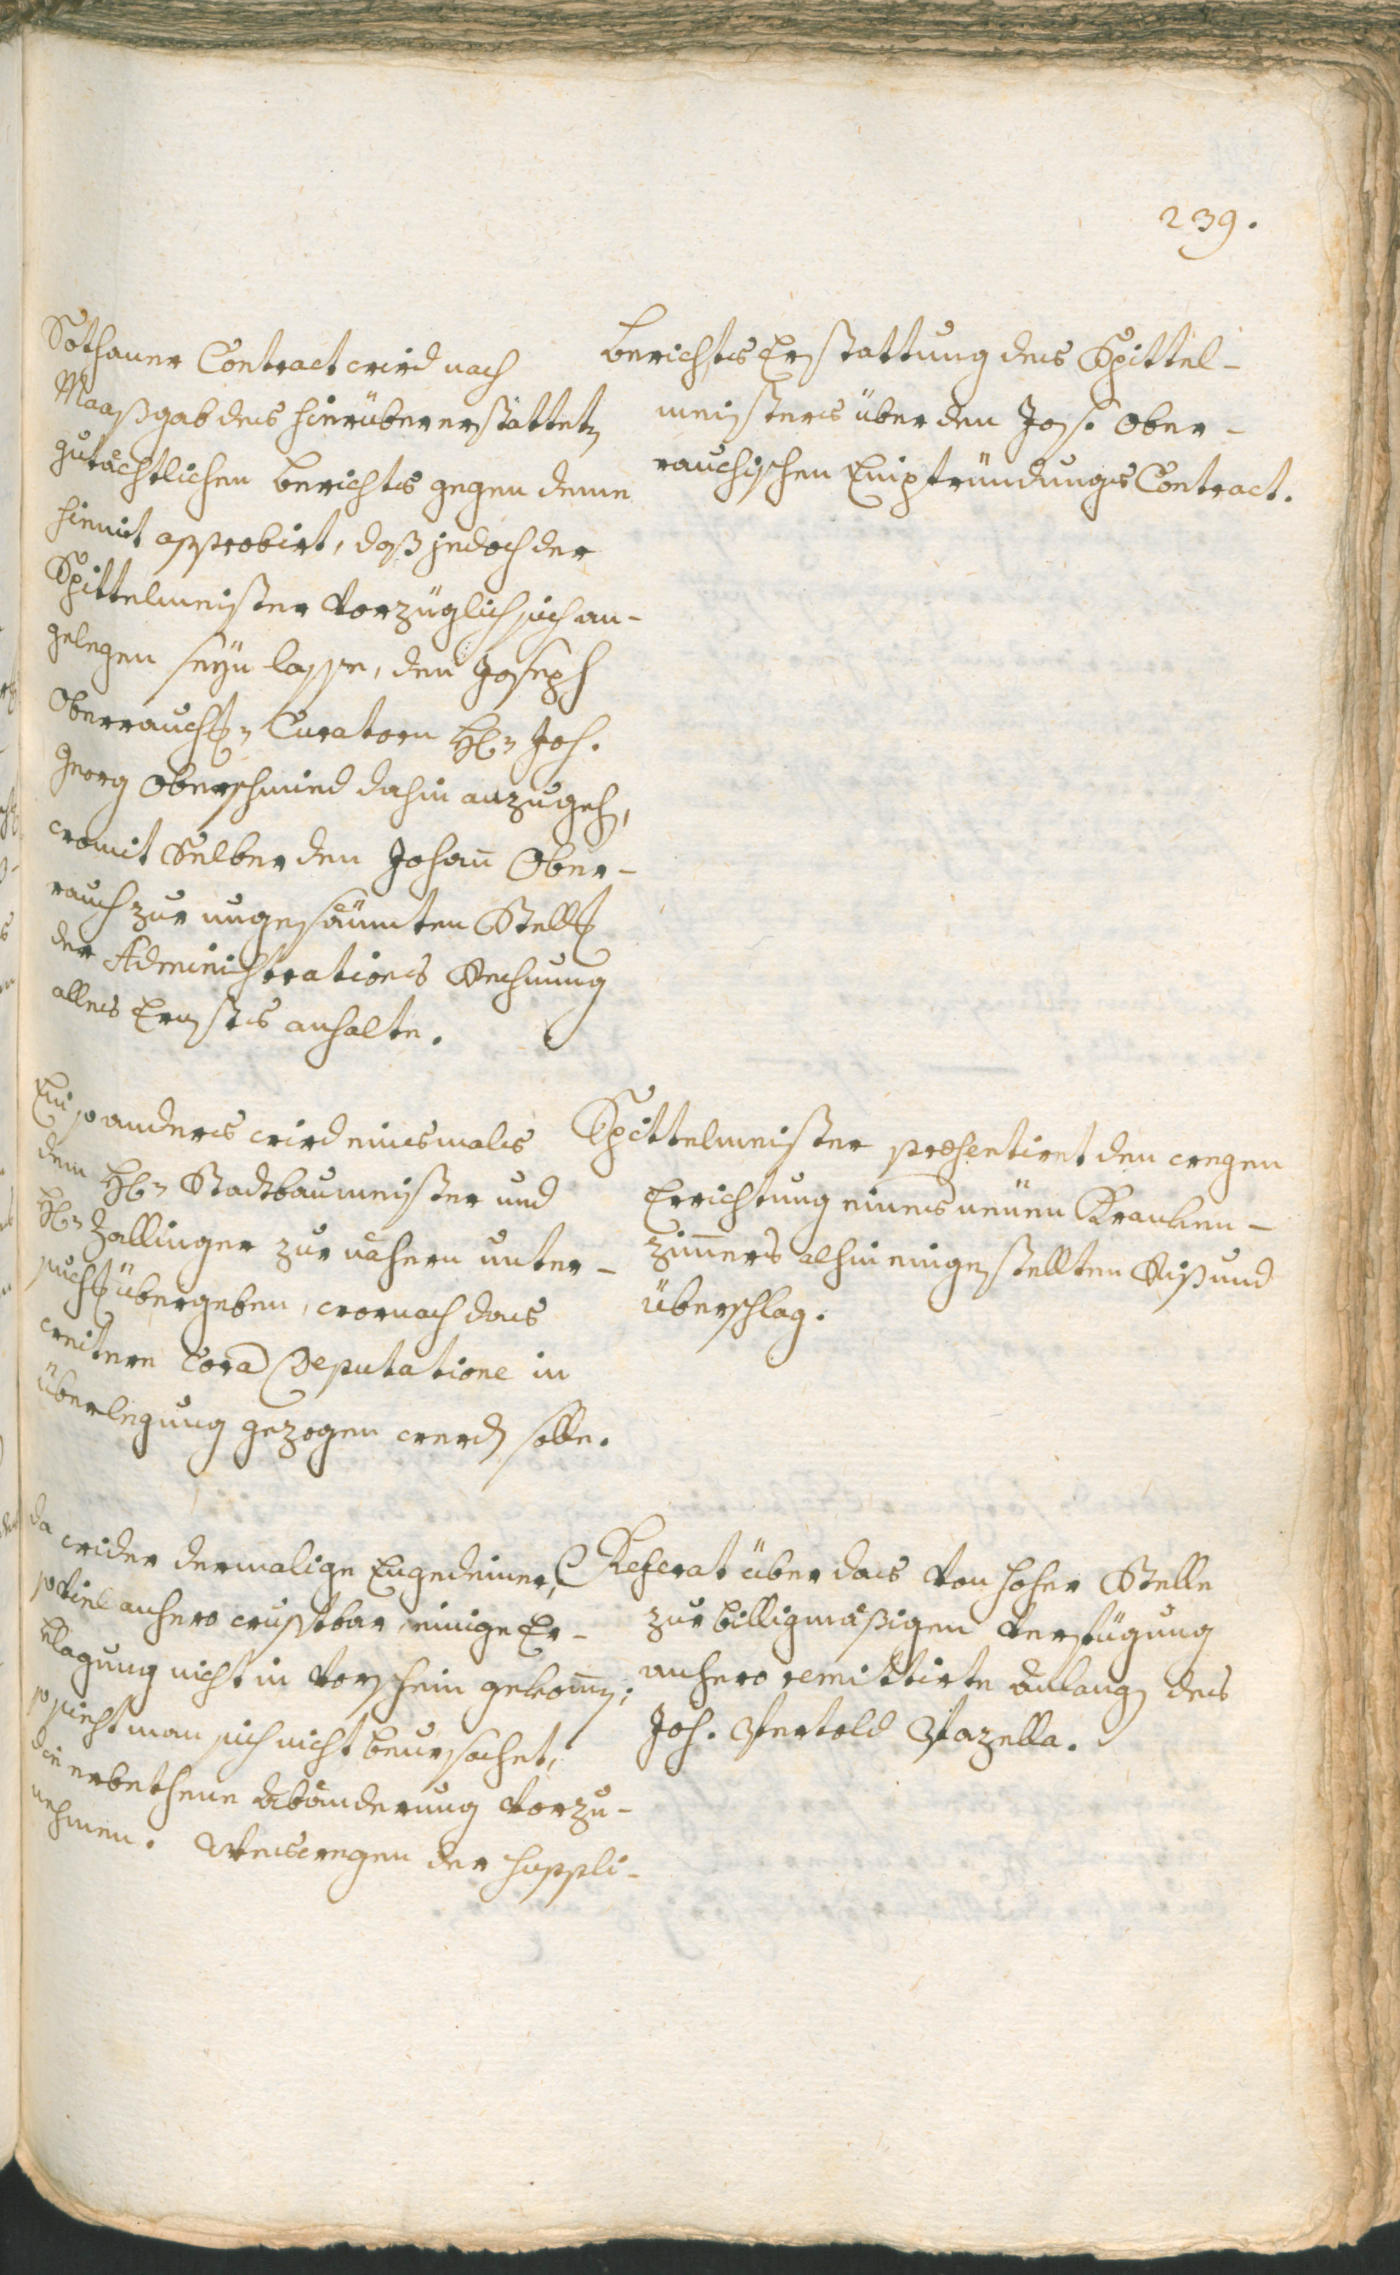 239.
Sothaner Contract wird nach
Maaßgab des hierüber erstatteten
gutächtlichen berichts gegen deme
hiemit approbirt, daß jedoch der
Spittelmeister vorzüglich sich an-
gelegen seÿn lasse, den Joseph
Oberrauchischen Curatorn Hrn Joh.
Georg Oberschmied dahin anzugehen,
womit Selber den Johann Ober-
rauch zur ungesäumten Stellung
der Administrations Rechnung
alles Ernstes anhalte.
berichts Erstattung des Spittel-
meisters über den Jos. Ober-
rauchischen Contract.
Ein so anders wird einsmals
dem Hrn Stadtbaumeister und
Hrn Zallinger zur nähern unter-
suchung übergeben, wornach das
weitere Coram Deputatione in
überlegung gezogen werden solle.
Spittelmeister præsentiret den wegen
Errichtung eines neüen Kranken-
zimmers alhier eingestellten Riß und
überschlag.
da wider dermalige
so viel anhero wusstbar, einige Er-
klagung nicht in Vorschein gekommen;
so sieht man sich nicht beursachet,
die erbethene Abänderung vorzu-
nehmen. Weswegen der suppli-
Referat über das von hoher Stelle
zur billigmäßigen Verfügung
anhero remittirte Anlangen des
Joh. Bertold Stazella.